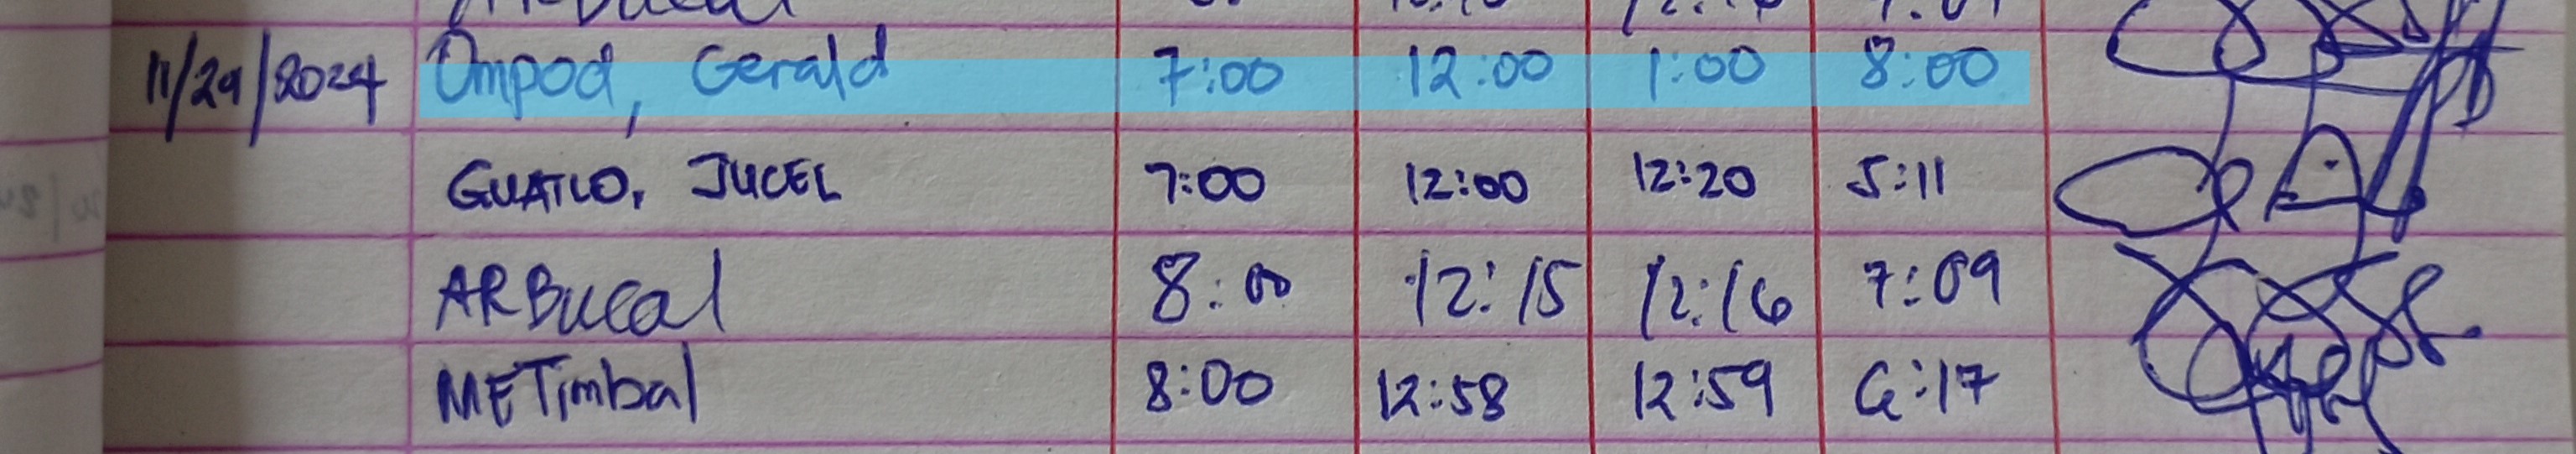 11/29/2024 Ompod, Gerald 7:00 12:00 1:00 8:00
GUATLO, JUCEL 7:00 12:00 12:20 5:11
ARBucal 8:00 12:15 12:16 7:09
METimbal 8:00 12:58 12:59 6:17